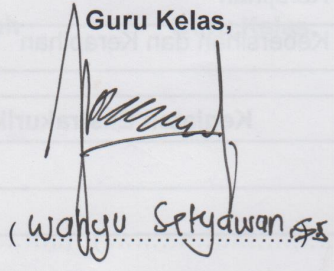 Guru Kelas,
( Wahyu Setyawan